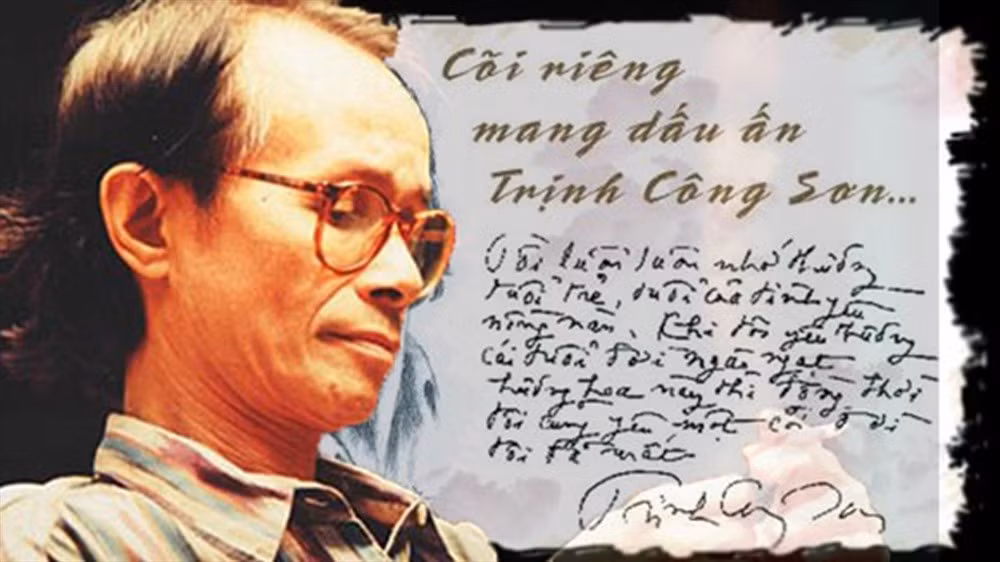 Cõi riêng
mang dấu ấn
Trịnh Công Sơn...
Tôi luôn luôn nhớ thương
tuổi trẻ, tuổi của tình yêu
nồng nàn. Khi tôi yêu thương
cái tuổi đời ngát ngạt
hương hoa này thì đồng thời
tôi cũng yêu một cõi đời
tôi đã mất
Trịnh Công Sơn